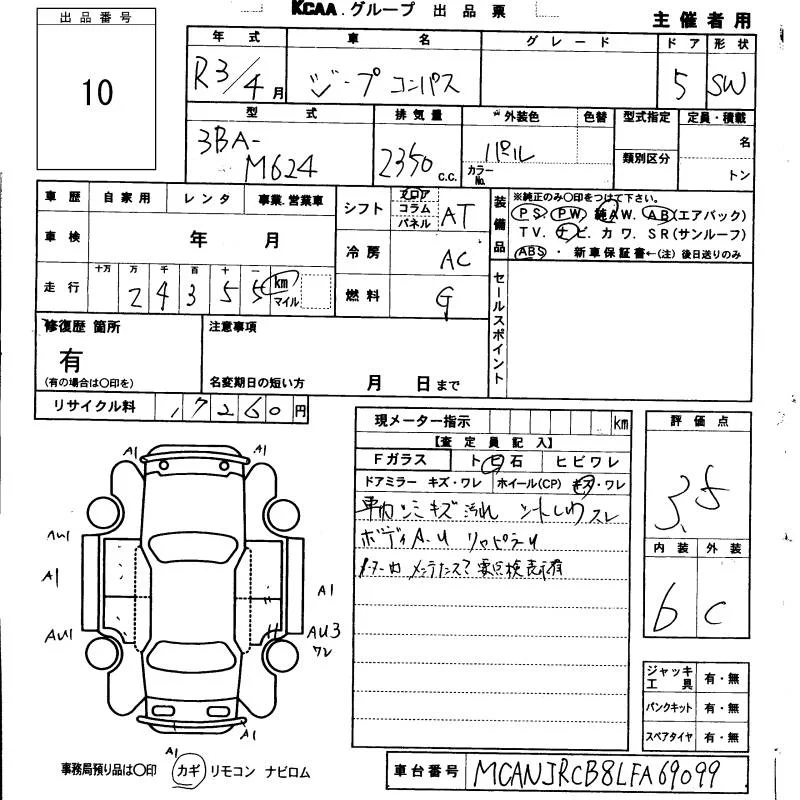 KCAA.グループ 出品票
主催者用
出品番号
10
年式 車名 グレード ドア 形状
R3/4月 ジープ コンパス 5 SW
型式 排気量 外装色 色替 型式指定 定員・積載
3BA-M624 2350 c.c. パール カラーNo. 類別区分 名 トン
車歴 自家用 レンタ 事業.営業車
車検 年 月
走行 十万 万 千 百 十 一
24355 km マイル
シフト フロア コラム パネル AT
冷房 AC
燃料 G
装備品
※純正のみ〇印をつけて下さい。
PS PW 純AW. AB(エアバック)
TV. ナビ. カワ. SR(サンルーフ)
ABS・新車保証書←(注)後日送りのみ
セールスポイント
修復歴 箇所
有
(有の場合は〇印を)
注意事項
名変期日の短い方 月 日まで
リサイクル料 17260円
現メーター指示 km
【査定員記入】
Fガラス トビ石 ヒビワレ
ドアミラー キズ・ワレ ホイール(CP) キズ・ワレ
車内シミキズ汚れ シートしわスレ
ボディA.U
評価点
3.5
内装 外装
6 C
ジャッキ 工具 有・無
パンクキット 有・無
スペアタイヤ 有・無
A1 A1
AU1
A1 A1
AU1 AU3
ワレ
A1 A1
事務局預り品は〇印 カギ リモコン ナビロム
車台番号 MCANJRCB8LFA69099